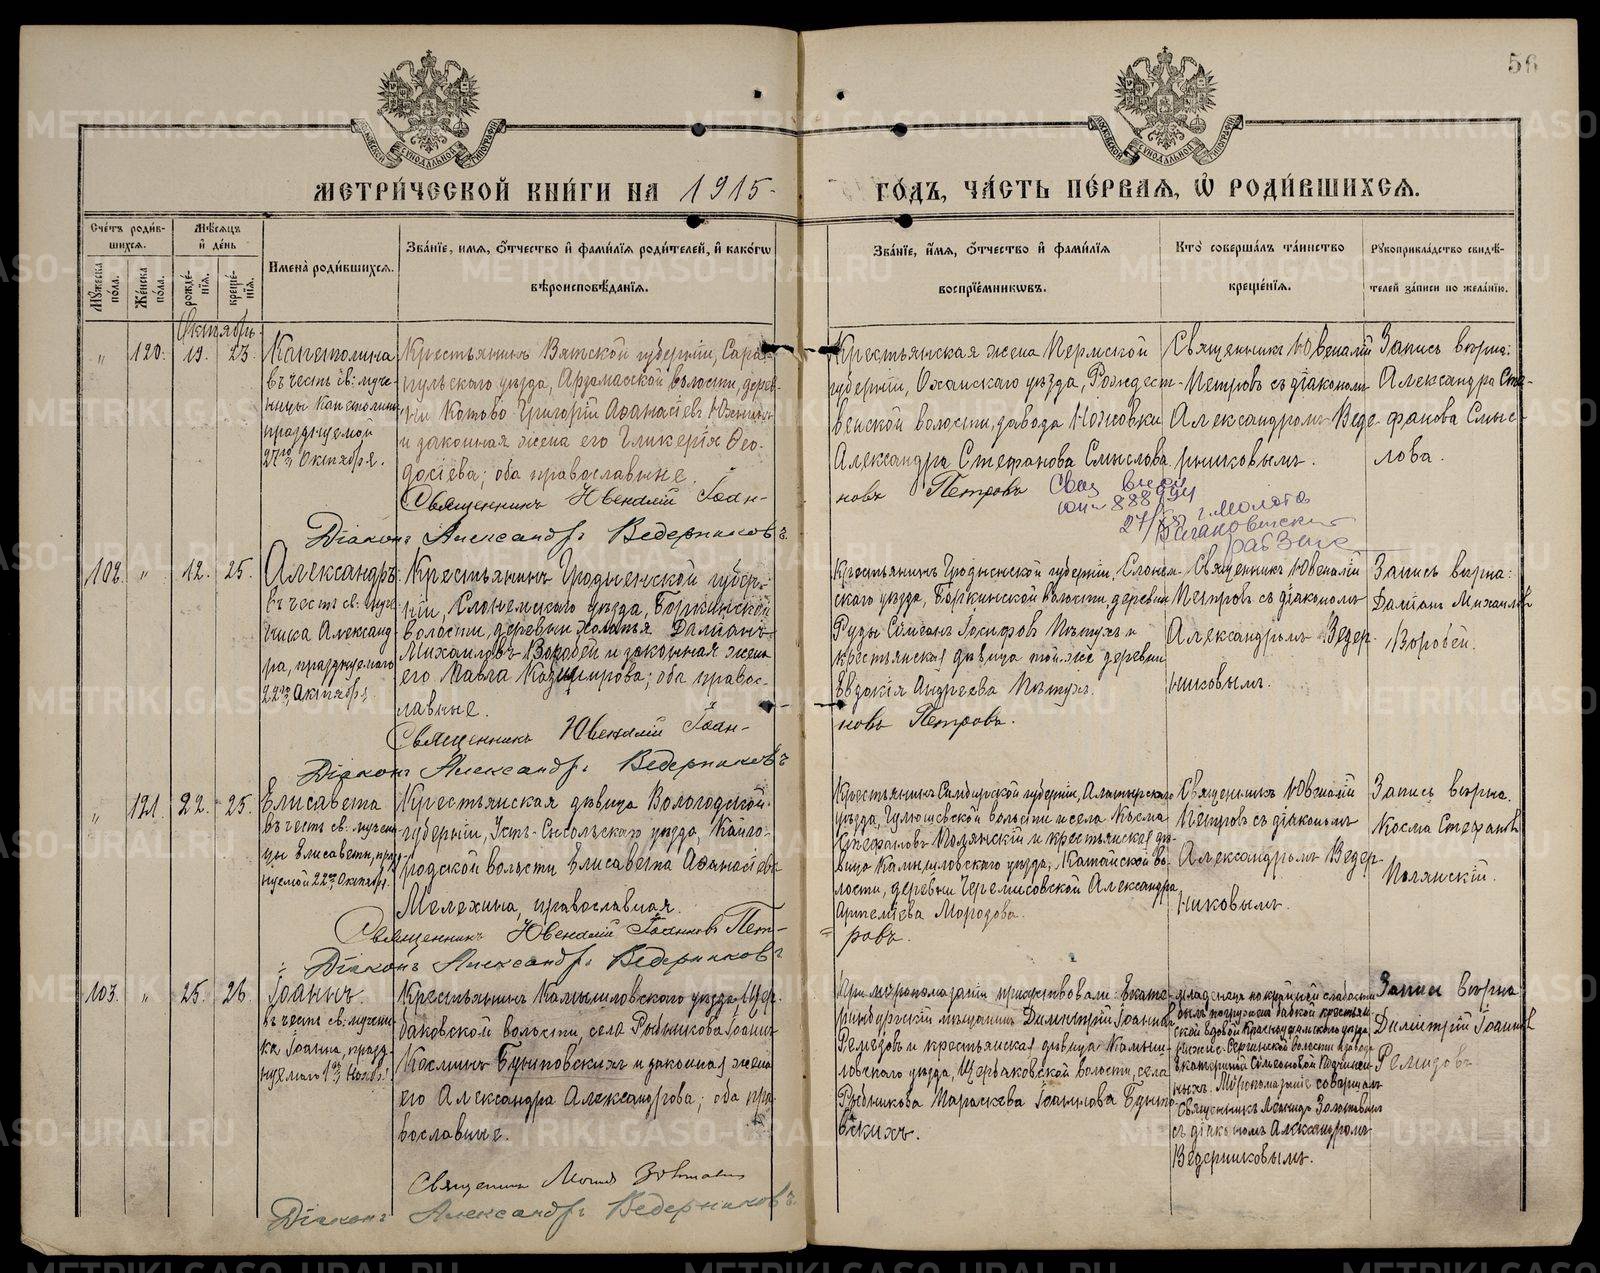 56
МЕТРИ́ЧЕСКОЙ КНИ́ГИ НА 1915 ГО́ДЪ, ЧА́СТЬ ПЕ́РВАЯ, Ѡ РОДИ́ВШИХСЯ.
Сче́тъ роди́вшихся.
Мѣ́сяцъ и де́нь
Му́жеска по́ла.
Же́нска по́ла.
рожде́нїя.
креще́нїя.
Имена̀ роди́вшихся.
Зва́нїе, имя, о́тчество и фами́лїя роди́телей, и како́гѡ
вѣроисповѣ́данїя.
Зва́нїе, и́мя, о́тчество и фами́лїя
воспрїе́мникѡвъ.
Кто̀ соверша́лъ та́инство
креще́нїя.
Рукоприкла́дство свидѣ́-
телей за́писи по жела́нїю.
Октябрь
„ 120. 19. 23
Капетолина
въ честь св: муче-
ницы Капетолины
празднуемой
27го Октября.
Крестьянинъ Вятской губерніи, Сара-
пульскаго уѣзда, Арзамасской волости, дерев-
ни Котово Григорій Аѳанасіевъ
и законная жена его Гликерія Ѳео-
досіева; оба православные.
Священникъ Ювеналій Іоан-
Діаконъ Александръ Ведерниковъ
Крестьянская жена Пермской
губерніи, Оханскаго уѣзда, Рождест-
венской волости, завода Ножовки
Александра Стефанова Смыслова.
новъ Петровъ
888994
27/
г. Молотов
Священникъ Ювеналій
Петровъ съ діакономъ
Александромъ Веде-
рниковымъ.
Запись вѣрна:
Александра Сте-
фанова Смыс-
лова.
102. „ 12. 25.
Александръ
въ честь св: муче-
ника Александ-
ра, празднуемаго
22го Октября
Крестьянинъ Гродненской губер-
ніи, Слонимскаго уѣзда, Боркинской
волости, деревни Даміанъ
Михаиловъ Воробей и законная жена
его Павла Казимирова; оба право-
славные.
Священникъ Ювеналій Іоан-
Діаконъ Александръ Ведерниковъ
Крестьянинъ Гродненской губерніи, Слоним-
скаго уѣзда, Боркинской волости, деревни
Руды Іосифовъ Пѣтухъ и
крестьянская дѣвица той-же деревни
Евдокія Андреева Пѣтухъ.
новъ Петровъ.
Священникъ Ювеналій
Петровъ съ діакономъ
Александромъ Ведер-
никовымъ.
Запись вѣрна:
Даміанъ Михаиловъ
Воробей.
„ 121. 22. 25.
Елисавета
въ честь св: мучени-
цы Елисаветы, празд-
нуемой 22го Октября.
Крестьянская дѣвица Вологодской
губерніи, Усть-Сысольскаго уѣзда, Кайго-
родской волости Елисавета Аѳанасіева
Мелехина, православная.
Священникъ Ювеналій Іоанновъ Пет-
Діаконъ Александръ Ведерниковъ
Крестьянинъ Симбирской губерніи, Алатырскаго
уѣзда, волости и села Косма
Стефановъ Полянскій и крестьянская дѣ-
вица Камышловскаго уѣзда, Катайской во-
лости, деревни Черемисовской Александра
Артеміева Морозова.
ровъ.
Священникъ Ювеналій
Петровъ съ діакономъ
Александромъ Ведер-
никовымъ.
Запись вѣрна.
Косма Стефановъ
Полянскій.
103. „ 25. 26.
Іоаннъ.
въ честь св: мучени-
ка Іоанна, празд-
нуемаго 1го Нояб:
Крестьянинъ Камышловскаго уѣзда, Щер-
баковской волости, села Рыбникова Іоаннъ
Косминъ Бутновскихъ и законная жена
его Александра Александрова; оба пра-
вославные.
Священникъ Леонидъ
Діаконъ Александръ Ведерниковъ
При мѵропомазаніи присутствовали: Екате-
ринбургскій мѣщанинъ Димитрій Іоанновъ
Ремезовъ и крестьянская дѣвица Камыш-
ловскаго уѣзда, Щербаковской волости, села
Рыбникова Параскева Іоаннова
вскихъ.
младенецъ по крайней слабости
былъ погруженъ бабкой крестьян-
ской вдовой Красноуфимскаго уѣзда,
Нижне-Сергинской волости и завода
Екатериной Симеоновой
Мѵропомазаніе совершалъ
Священникъ Леонидъ
съ діакономъ Александромъ
Ведерниковымъ.
Запись вѣрна
Димитрій Іоанновъ
Ремезовъ